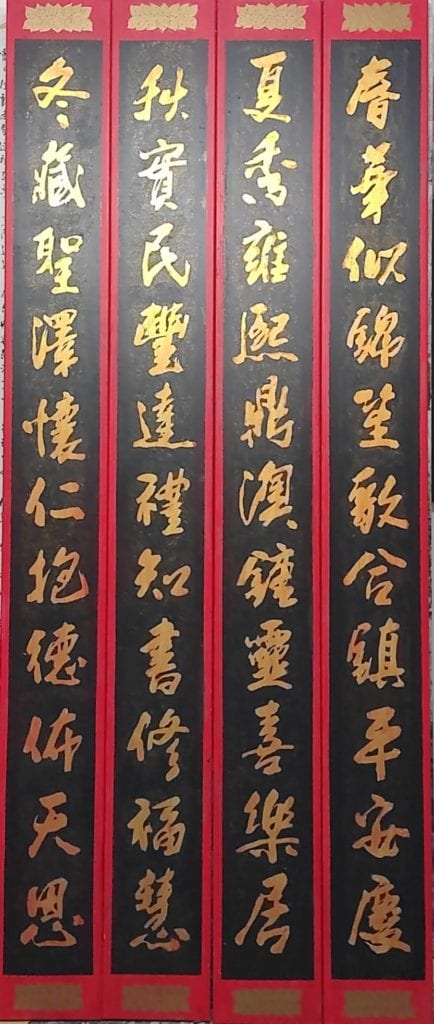 春華似錦笙歌合鎮平安慶
夏秀雍熙鼎澳鍾靈喜樂居
秋實民豐達禮知書修福慧
冬藏聖澤懷仁抱德佈天恩